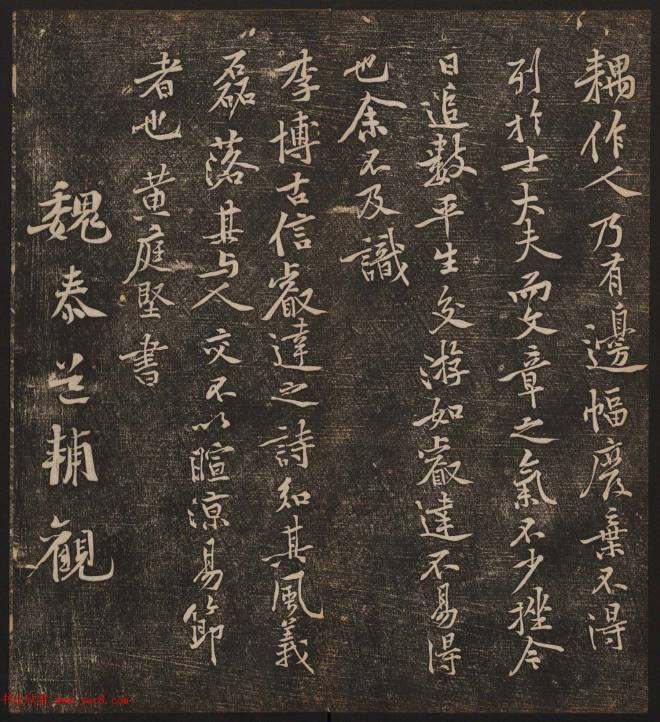 耦作人乃有邊幅廢棄不得
列於士大夫而文章之氣不少挫今
日追數平生交游如睿達不易得
也余不及識
李博古信睿達之詩知其風義
磊落其與人交不以暄涼易節
者也黃庭堅書
魏泰道輔觀
www.yac8.com